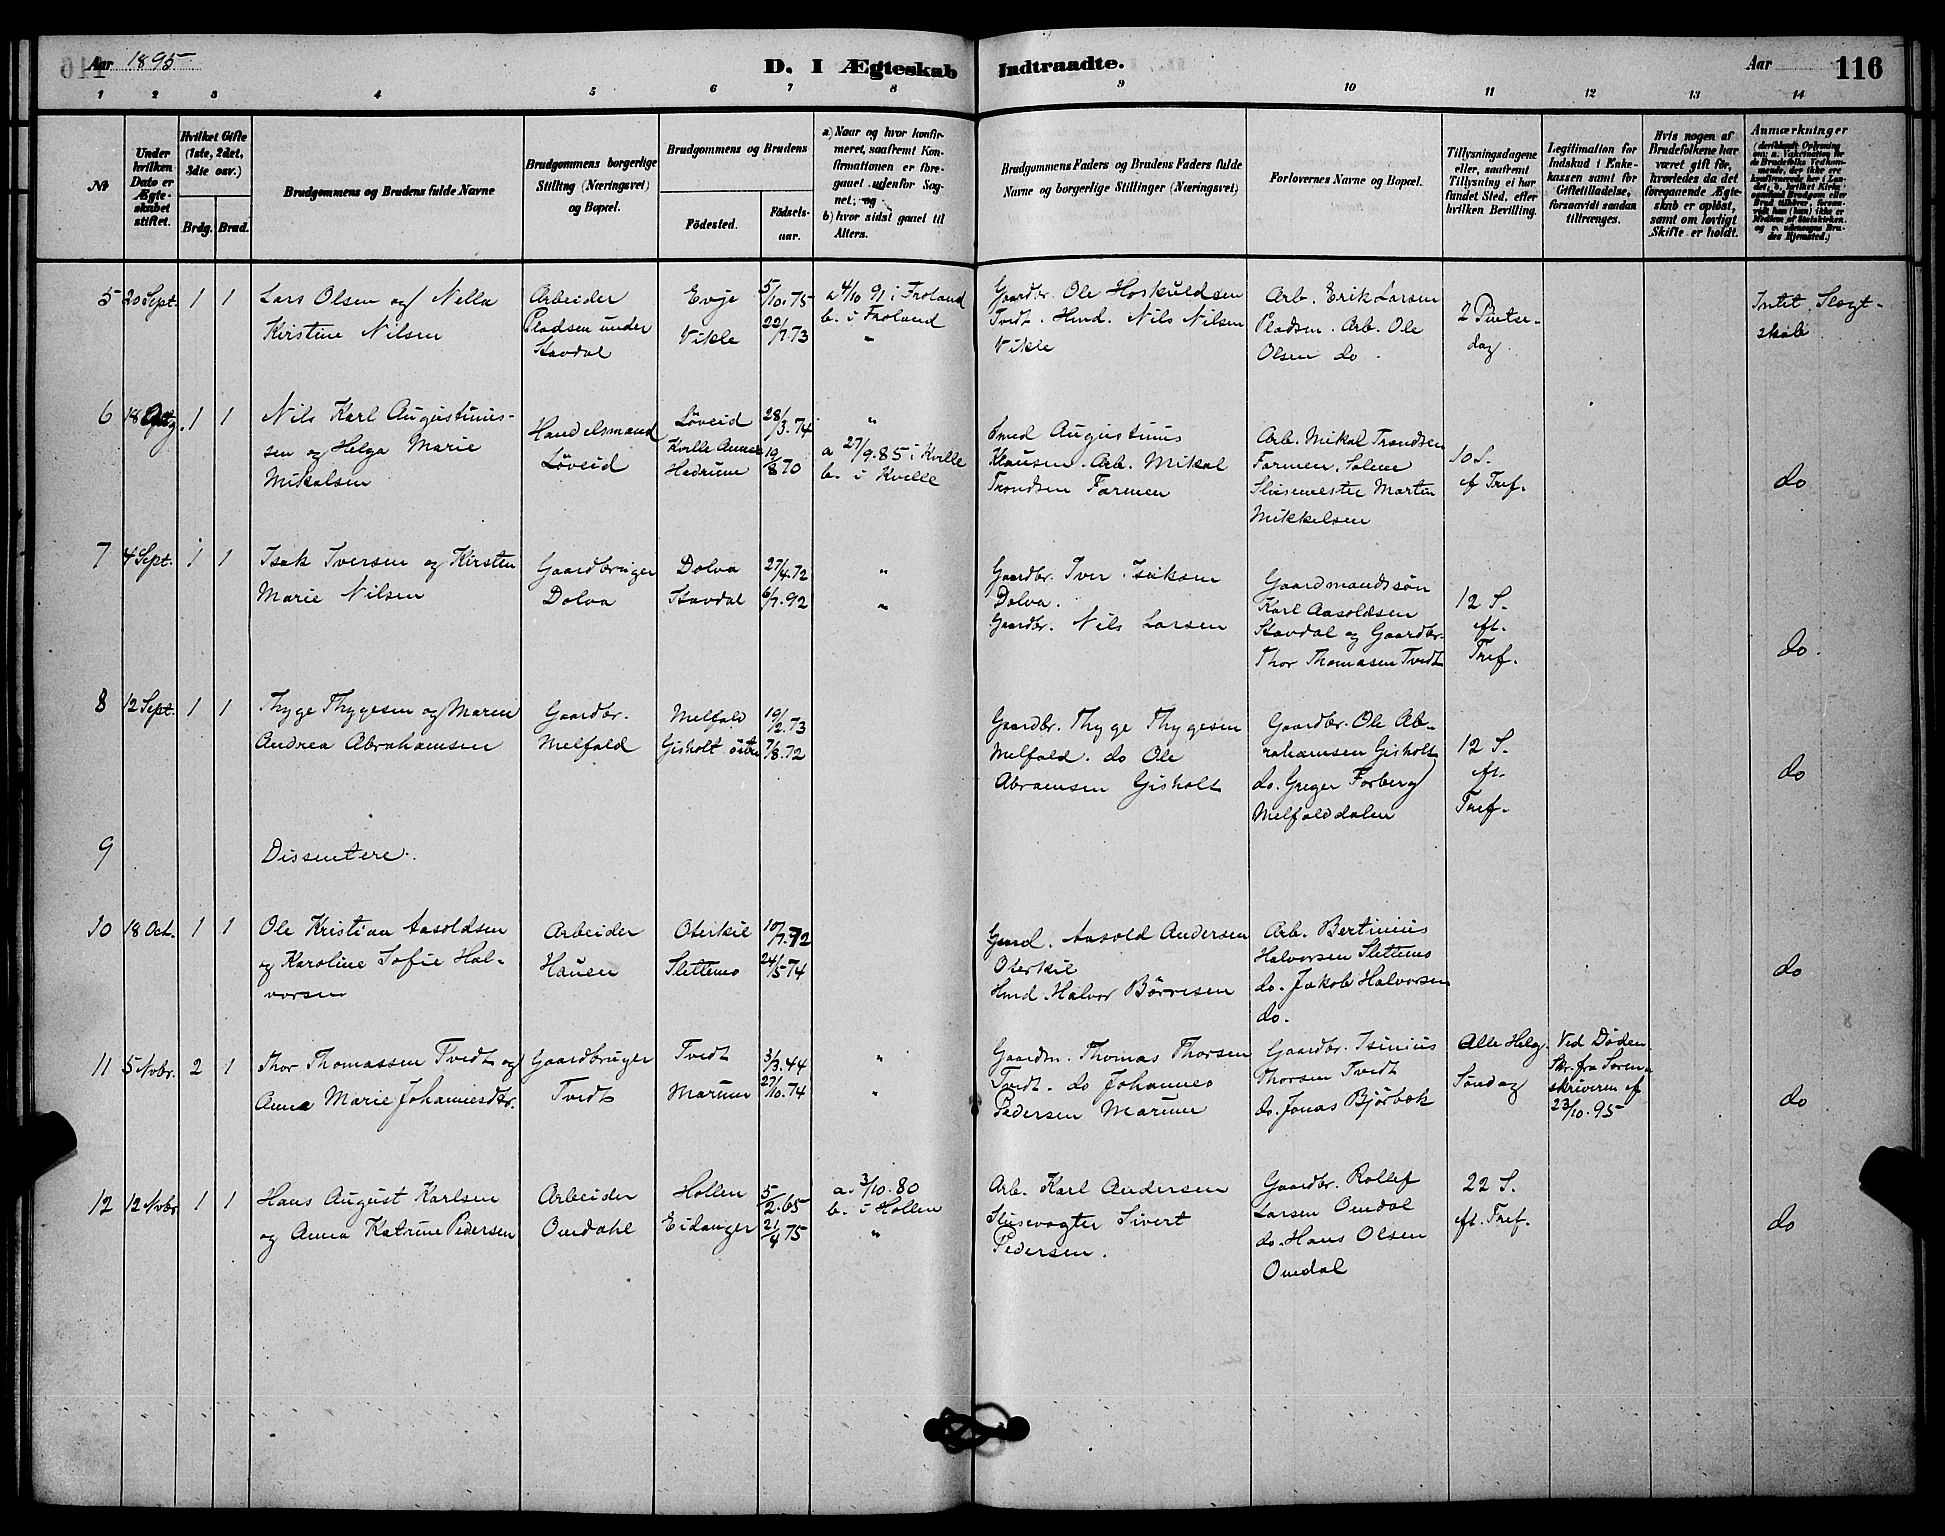 Aar 1895
D. I Ægteskab Indtraadte.
Aar
116
1 2 3 4 5 6 7 8 9 10 11 12 13 14
№
Under hvilken Dato er Ægteskabet stiftet.
Hvilket Gifte (1ste, 2det, 3die osv.)
Brdg. Brud.
Brudgommens og Brudens fulde Navne
Brudgommens borgerlige Stilling (Næringsvei) og Bopæl.
Brudgommens og Brudens
Födested.
Födselsaar.
a) Naar og hvor konfirmeret, saafremt Konfirmationen er foregaaet udenfor Sognet; og
b) hvor sidst gaaet til Alters.
Brudgommens Faders og Brudens Faders fulde Navne og borgerlige Stillinger (Næringsvei)
Forlovernes Navne og Bopæl.
Tillysningsdagene eller, saafremt Tillysning ei har fundet Sted, efter hvilken Bevilling.
Legitimation for Indskud i Enkekassen samt for Giftetilladelse, forsaavidt saadan tiltrænges.
Hvis nogen af Brudefolkene har været gift för, hvorledes da det foregaaende Ægteskab er oplöst, samt om lovligt Skifte er holdt.
Anmærkninger
5 20 Sept. 1 1
Lars Olsen og Nella
Kirstine Nilsen
Arbeider
Pladsen under
Stavdal
Evje
Vikle
5/10.75
22/7.73
a 4/10 91 i Froland
b. i Froland
"
Gaardbr. Ole Hoskuldsen
Tvedt. Hmd. Nils Nilsen
Vikle
Arb. Erik Larsen
Pladsen. Arb. Ole
Olsen do.
2 Pintse-
dag.
Intet Slægt-
skab
6 18 Aug. 1 1
Nils Karl Augustinus-
sen og Helga Marie
Mikalsen
Handelsmand
Löveid
Löveid
Kvelle Annex
Hedrum
28/3.74
19/8 70
"
a 27/9.85 i Kvelle
b. i Kvelle
Smed Augustinus
Klausen. Arb. Mikal
Trondsen Farmen
Arb. Mikal Trondsen
Farmen. Solum
Slusemester Martin
Mikkelsen
10 S.
ef Tref.
do
7 4 Sept. 1 1
Isak Iversen og Kirsten
Marie Nilsen
Gaardbruger
Dolva
Dolva
Stavdal
27/4.72
6/7.92
"
"
Gaardbr. Iver Isaksen
Dolva.
Gaardbr. Nils Larsen
Gaardmandssön
Karl Aasoldsen
Stavdal og Gaardbr.
Thor Thomasen Tvedt
12 S.
eft.
Tref.
do.
8 12 Sept. 1 1
Thyge Thygesen og Maren
Andrea Abrahamsen
Gaardbr.
Melfald
Melfald
Gisholt östre
19/2.73
7/8.72
Gaardbr. Thyge Thygesen
Melfald. do Ole
Abramsen Gisholt
Gaardbr. Ole Ab-
rahamsen Gisholt
do. Greger Forberg
Melfalddalen
12 S.
eft.
Tref.
do
9
Dissentere.
10 18 Oct. 1 1
Ole Kristian Aasoldsen
og Karoline Sofie Hal-
vorsen
Arbeider
Hauen
Oterkil
Slettemo
10/7.72
24/5 74
Gmd. Aasold Andersen
Oterkil
Hmd. Halvor Börresen
Arb. Bertinius
Halvorsen Slettemo
do. Jakob Halvorsen
do.
do
11 5 Nvbr. 2 1
Thor Thomassen Tvedt og
Anna Marie Johannesdtr.
Gaardbruger
Tvedt
Tvedt
Marum
3/3.44
27/10.74
"
"
Gaardm. Thomas Thorsen
Tvedt. do Johannes
Pedersen Marum
Gaardbr. Isinius
Thorsen Tvedt
do. Jonas Björbæk
Alle Helg.
Söndag
Ved Döden
Skr. fra Soren-
skriveren af
23/10.95
do
12 12 Nvbr 1 1
Hans August Karlsen
og Anna Katrine Pedersen
Arbeider
Omdahl
Hollen
Eidanger
5/2.65
21/4 75
a. 3/10.80
b. i Hollen
"
Arb. Karl Andersen
Slusevogter Sivert
Pedersen.
Gaardbr. Rollef
Larsen Omdal
do. Hans Olsen
Omdal
22 S.
eft. Tref.
do